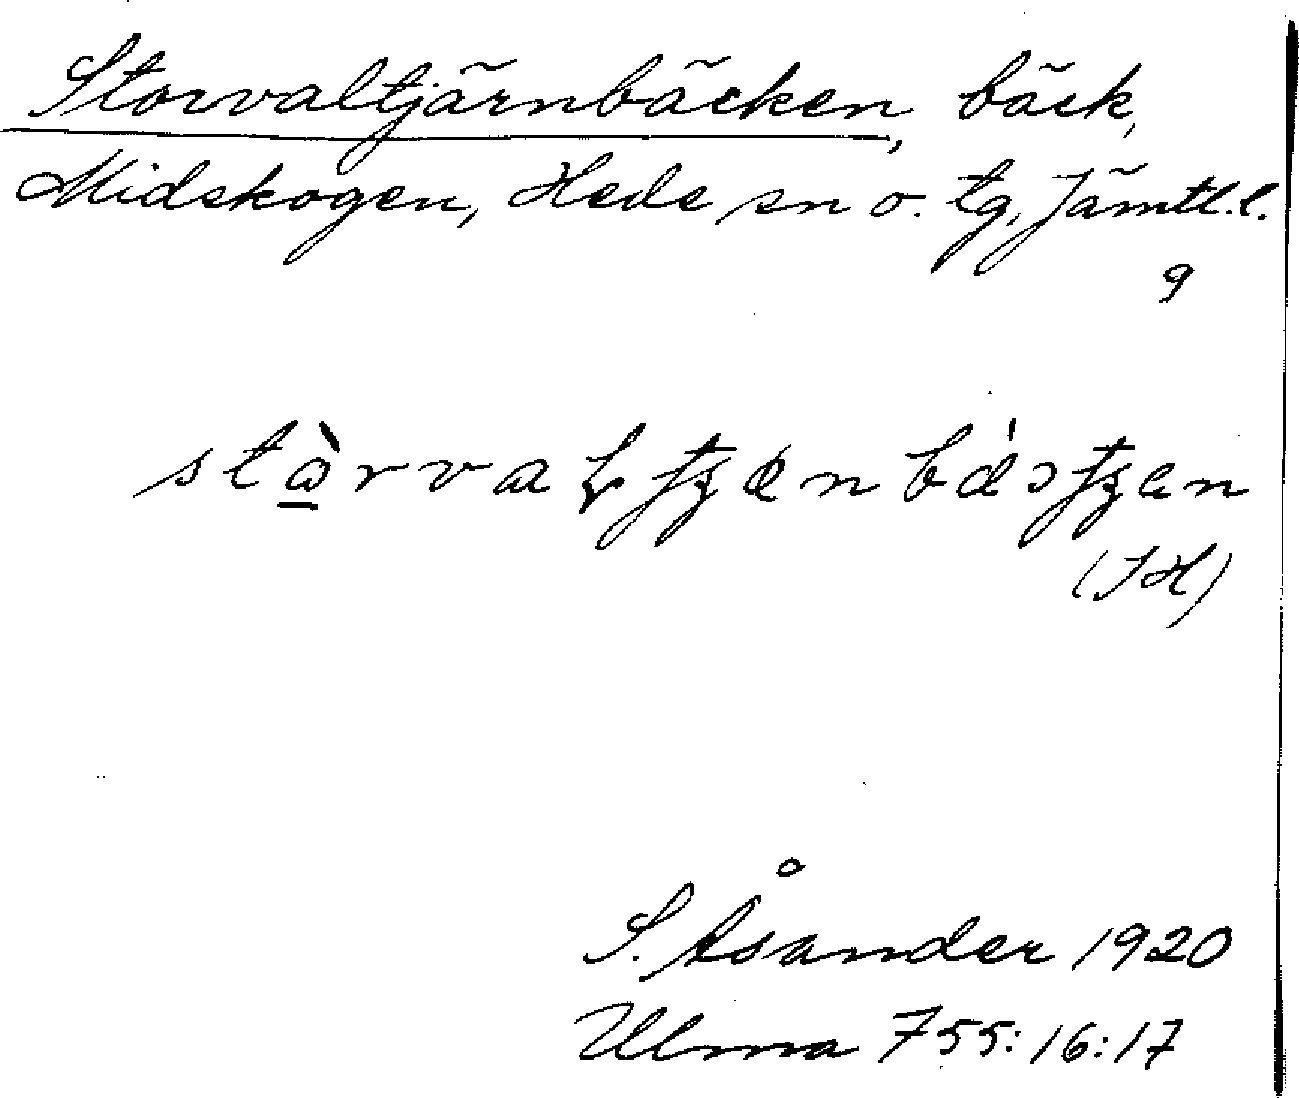 Storvaltjärnbäcken, bäck,
Midskogen, Hede sn o. tg, Jämtl.l.
9
(JH)
S. Åsander 1920
Ulma 755:16:17